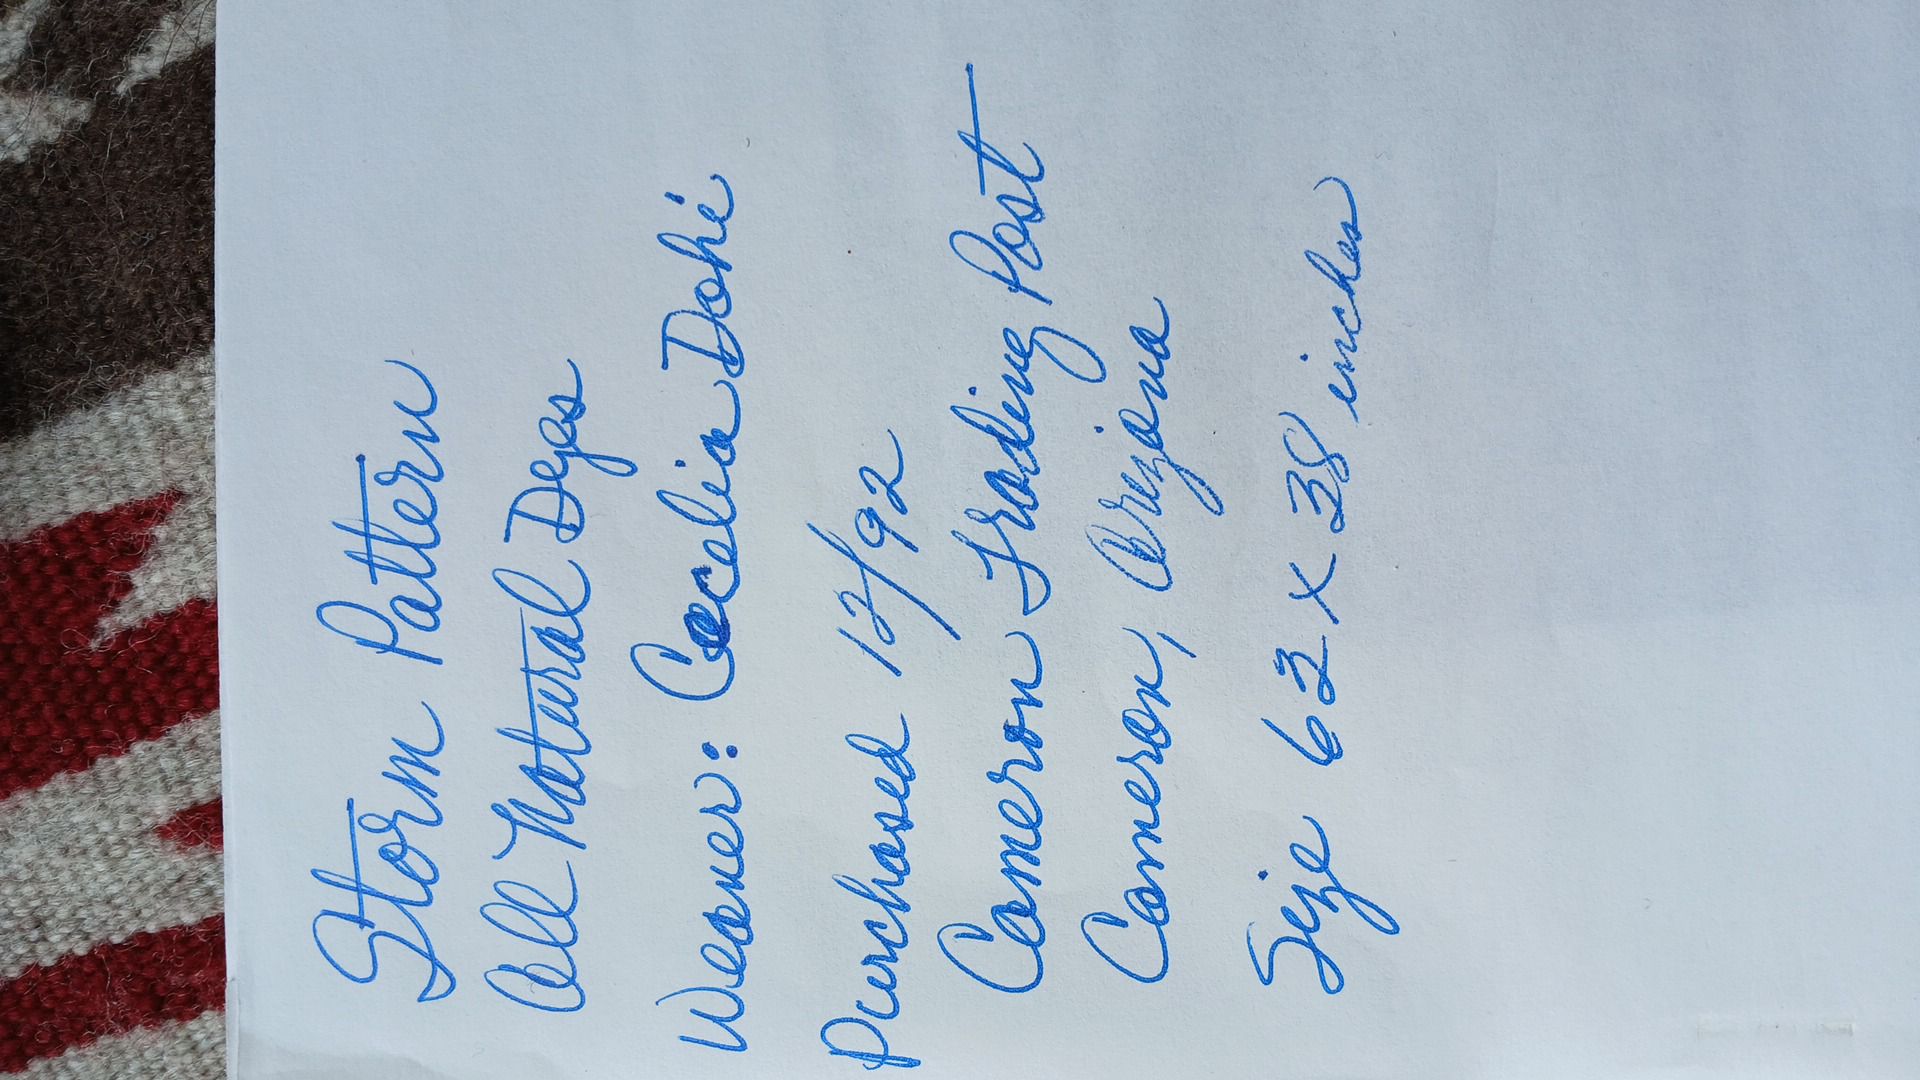 Storm Pattern
All Natural Dyes
Weaver: Cecelia Dohi
Purchased 12/92
Cameron Trading Post
Cameron, Arizona
Size 62 x 38 inches